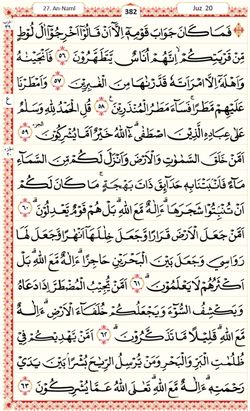 27. An-Naml 382 Juz 20
فَمَا كَانَ جَوَابَ قَوْمِهٖۤ اِلَّاۤ اَنْ قَالُوْۤا اَخْرِجُوْۤا اٰلَ لُوْطٍ
مِّنْ قَرْيَتِكُمْ ۚ اِنَّهُمْ اُنَاسٌ يَّتَطَهَّرُوْنَ ۵۶ فَاَنْجَيْنٰهُ
وَاَهْلَهٗۤ اِلَّا امْرَاَتَهٗ ؗ قَدَّرْنٰهَا مِنَ الْغٰبِرِيْنَ ۵۷ وَاَمْطَرْنَا
عَلَيْهِمْ مَّطَرًا ۚ فَسَآءَ مَطَرُ الْمُنْذَرِيْنَ ۵۸ قُلِ الْحَمْدُ لِلّٰهِ وَسَلٰمٌ
عَلٰى عِبَادِهِ الَّذِيْنَ اصْطَفٰى ؕ آٰللّٰهُ خَيْرٌ اَمَّا يُشْرِكُوْنَ ۵۹
اَمَّنْ خَلَقَ السَّمٰوٰتِ وَالْاَرْضَ وَاَنْزَلَ لَكُمْ مِّنَ السَّمَآءِ
مَآءً ۚ فَاَنْۢبَتْنَا بِهٖ حَدَآئِقَ ذَاتَ بَهْجَةٍ ۚ مَا كَانَ لَكُمْ
اَنْ تُنْۢبِتُوْا شَجَرَهَا ؕ ءَاِلٰهٌ مَّعَ اللّٰهِ ؕ بَلْ هُمْ قَوْمٌ يَّعْدِلُوْنَ ۶۰
اَمَّنْ جَعَلَ الْاَرْضَ قَرَارًا وَّجَعَلَ خِلٰلَهَاۤ اَنْهٰرًا وَّجَعَلَ لَهَا
رَوَاسِيَ وَجَعَلَ بَيْنَ الْبَحْرَيْنِ حَاجِزًا ؕ ءَاِلٰهٌ مَّعَ اللّٰهِ ؕ بَلْ
اَكْثَرُهُمْ لَا يَعْلَمُوْنَ ۶۱ اَمَّنْ يُّجِيْبُ الْمُضْطَرَّ اِذَا دَعَاهُ
وَيَكْشِفُ السُّوْٓءَ وَيَجْعَلُكُمْ خُلَفَآءَ الْاَرْضِ ؕ ءَاِلٰهٌ
مَّعَ اللّٰهِ ؕ قَلِيْلًا مَّا تَذَكَّرُوْنَ ۶۲ اَمَّنْ يَّهْدِيْكُمْ فِيْ
ظُلُمٰتِ الْبَرِّ وَالْبَحْرِ وَمَنْ يُّرْسِلُ الرِّيٰحَ بُشْرًۢا بَيْنَ يَدَيْ
رَحْمَتِهٖ ؕ ءَاِلٰهٌ مَّعَ اللّٰهِ ؕ تَعٰلَى اللّٰهُ عَمَّا يُشْرِكُوْنَ ۶۳